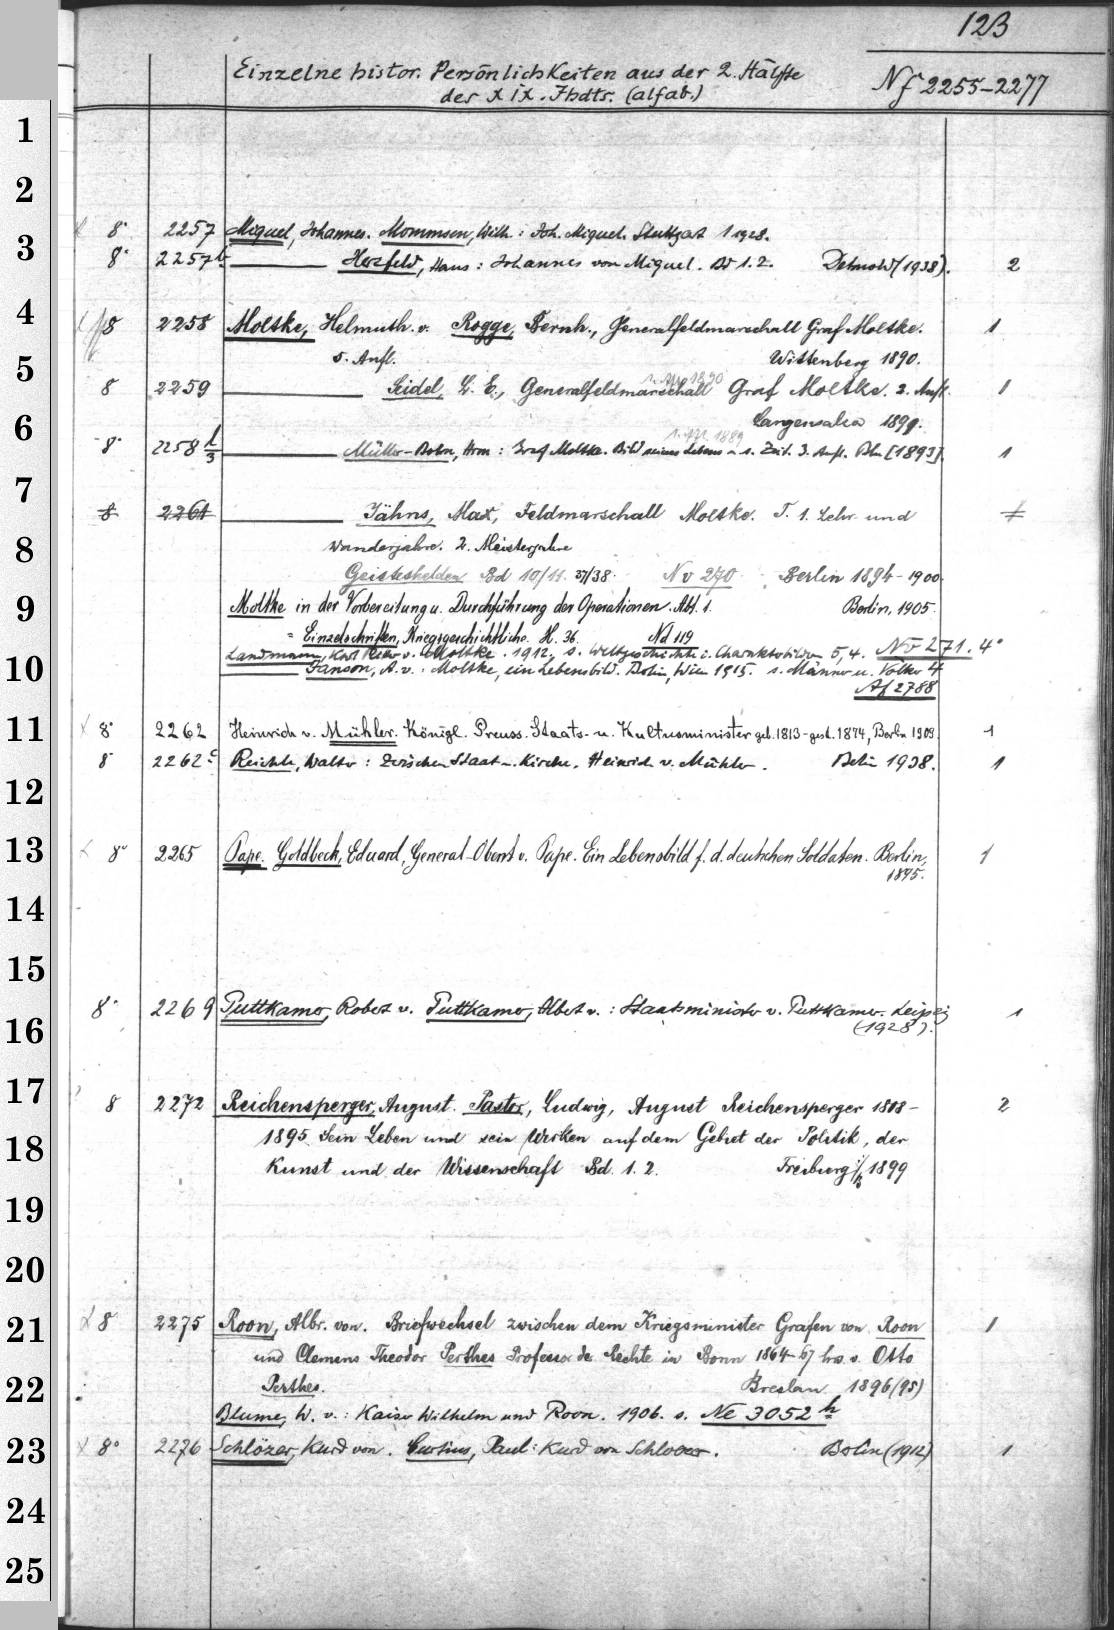 123
Einzelne histor. Persönlichkeiten aus der 2. Hälfte
des XIX. Jhdts. (alfab.)
Nf 2255-2277
1
2
8° 2257 Miquel, Johannes. Mommsen, Wilh.: Joh. Miquel. Stuttgart 1 1928.
3
8° 2257b Herzfeld, Hans: Johannes von Miquel. Bd 1.2. Detmold (1938). 2
4
8 2258 Moltke, Helmuth v. Rogge, Bernh., Generalfeldmarschall Graf Moltke. 1
5. Aufl. Wittenberg 1890.
5
8 2259 Seidel, L. E., Generalfeldmarschall Graf Moltke. 2. Aufl. 1
6
Langensalza 1891.
8° 2258 1/3 Müller-Bohn, Hrm: Graf Moltke. Bild seines Lebens u. s. Zeit. 3. Aufl. Bln [1893]. 1
7
8 2261 Jähns, Max, Feldmarschall Moltke. T. 1. Lehr- und
8
Wanderjahre. 2. Meisterjahre
Geisteshelden Bd 10/11. 37/38. Nv 270 Berlin 1894-1900.
9
Moltke in der Vorbereitung u. Durchführung der Operationen. Abt. 1. Berlin, 1905.
= Einzelschriften, Kriegsgeschichtliche. H. 36. Nd 119
Landmann, Karl Ritter v. Moltke. 1912. s. Weltgeschichte i. Charakterbildern 5,4. Nv 271. 4°
10
Janson, A. v.: Moltke, ein Lebensbild. Berlin, Wien 1915. s. Männer u. Völker 4
Af 2788
11
8° 2262 Heinrich v. Mühler. Königl. Preuss. Staats- u. Kultusminister geb. 1813 - gest. 1874, Berlin 1909. 1
8° 2262c Reichle, Walter: Zwischen Staat u. Kirche. Heinrich v. Mühler. Berlin 1938. 1
12
13
8° 2265 Pape. Goldbeck, Eduard, General-Oberst v. Pape. Ein Lebensbild f. d. deutschen Soldaten. Berlin, 1
1895.
14
15
8° 2269 Puttkamer, Robert v. Puttkamer, Albert v.: Staatsminister v. Puttkamer. Leipzig 1
16
(1928).
17
8 2272 Reichensperger, August. Pastor, Ludwig, August Reichensperger 1808- 2
18
1895. Sein Leben und sein Wirken auf dem Gebiet der Politik, der
Kunst und der Wissenschaft Bd. 1. 2. Freiburg i/B 1899
19
20
21
8 2275 Roon, Albr. von. Briefwechsel zwischen dem Kriegsminister Grafen von Roon 1
und Clemens Theodor Perthes Professor der Rechte in Bonn 1864-67 hrs. v. Otto
22
Perthes. Breslau 1896 (95)
Blume, W. v.: Kaiser Wilhelm und Roon. 1906. s. Ne 3052 h
23
8° 2276 Schlözer, Kurd von. Curtius, Paul: Kurd von Schlözer. Berlin (1912) 1
24
25